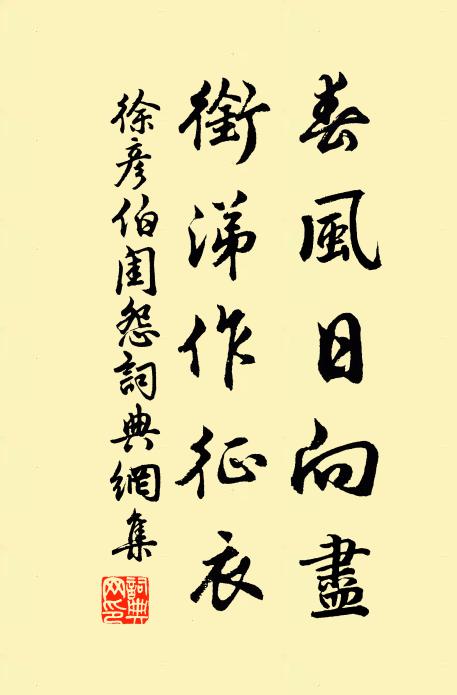 春風日向盡
銜涕作征衣
徐彥伯閨怨詞典網集
詞典網印